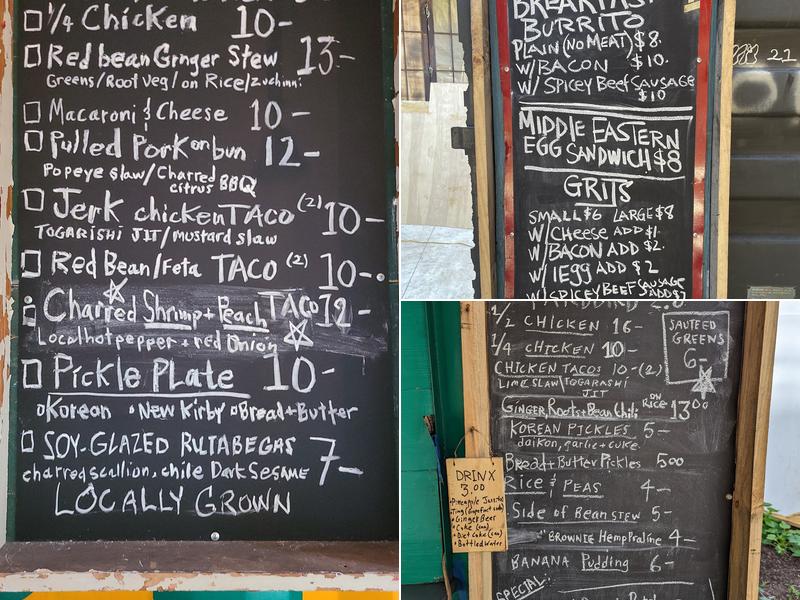 1/4 Chicken 10-
Red bean Gnger Stew 13-
Greens/Root veg/on Rice/zuchinni
Macaroni & Cheese 10-
Pulled Pork on bun 12-
Popeye slaw/Charred
citrus BBQ
Jerk chicken TACO (2) 10-
TOGARISHI JIT/mustard slaw
Red Bean/Feta TACO (2) 10-
Charred Shrimp + Peach TACO 12-
Local hot pepper + red Onion
Pickle PLate 10-
Korean New Kirby Bread + Butter
SOY-GLAZED RUTABEGAS 7-
charred scallion, chile Dark Sesame
LOCALLY GROWN
BREAKFAST
BURRITO
PLAIN (NO MEAT) $8.
W/BACON $10.
W/ SPICEY BEEF SAUSAGE
$10
MIDDLE EASTERN
EGG SANDWICH $8
GRITS
SMALL $6 LARGE $8
W/ CHEESE ADD $1.
W/ BACON ADD $2.
W/ 1 EGG ADD $2
W/ SPICEY BEEF SAUSAGE
ADD $3
21
1/2 CHICKEN 16-
1/4 CHICKEN 10-
CHICKEN TACOS 10-(2)
LIME SLAW/TOGARASHI
JIT
GINGER, Roots + Bean Chili ON RICE 13.00
KOREAN PICKLES 5-
daikon, garlic + cuke.
Bread + Butter Pickles 500
Rice & PEAS 4-
Side of BEAN STEW 5-
BROWNIE Hemp Praline 4-
BANANA Pudding 6-
SPECIAL:
SAUTEED
GREENS
6-
DRINX
3.00
Pineapple Juice
Ting (Grapefruit soda)
Ginger Beer
Coke (can)
Diet Coke (can)
Bottled Water